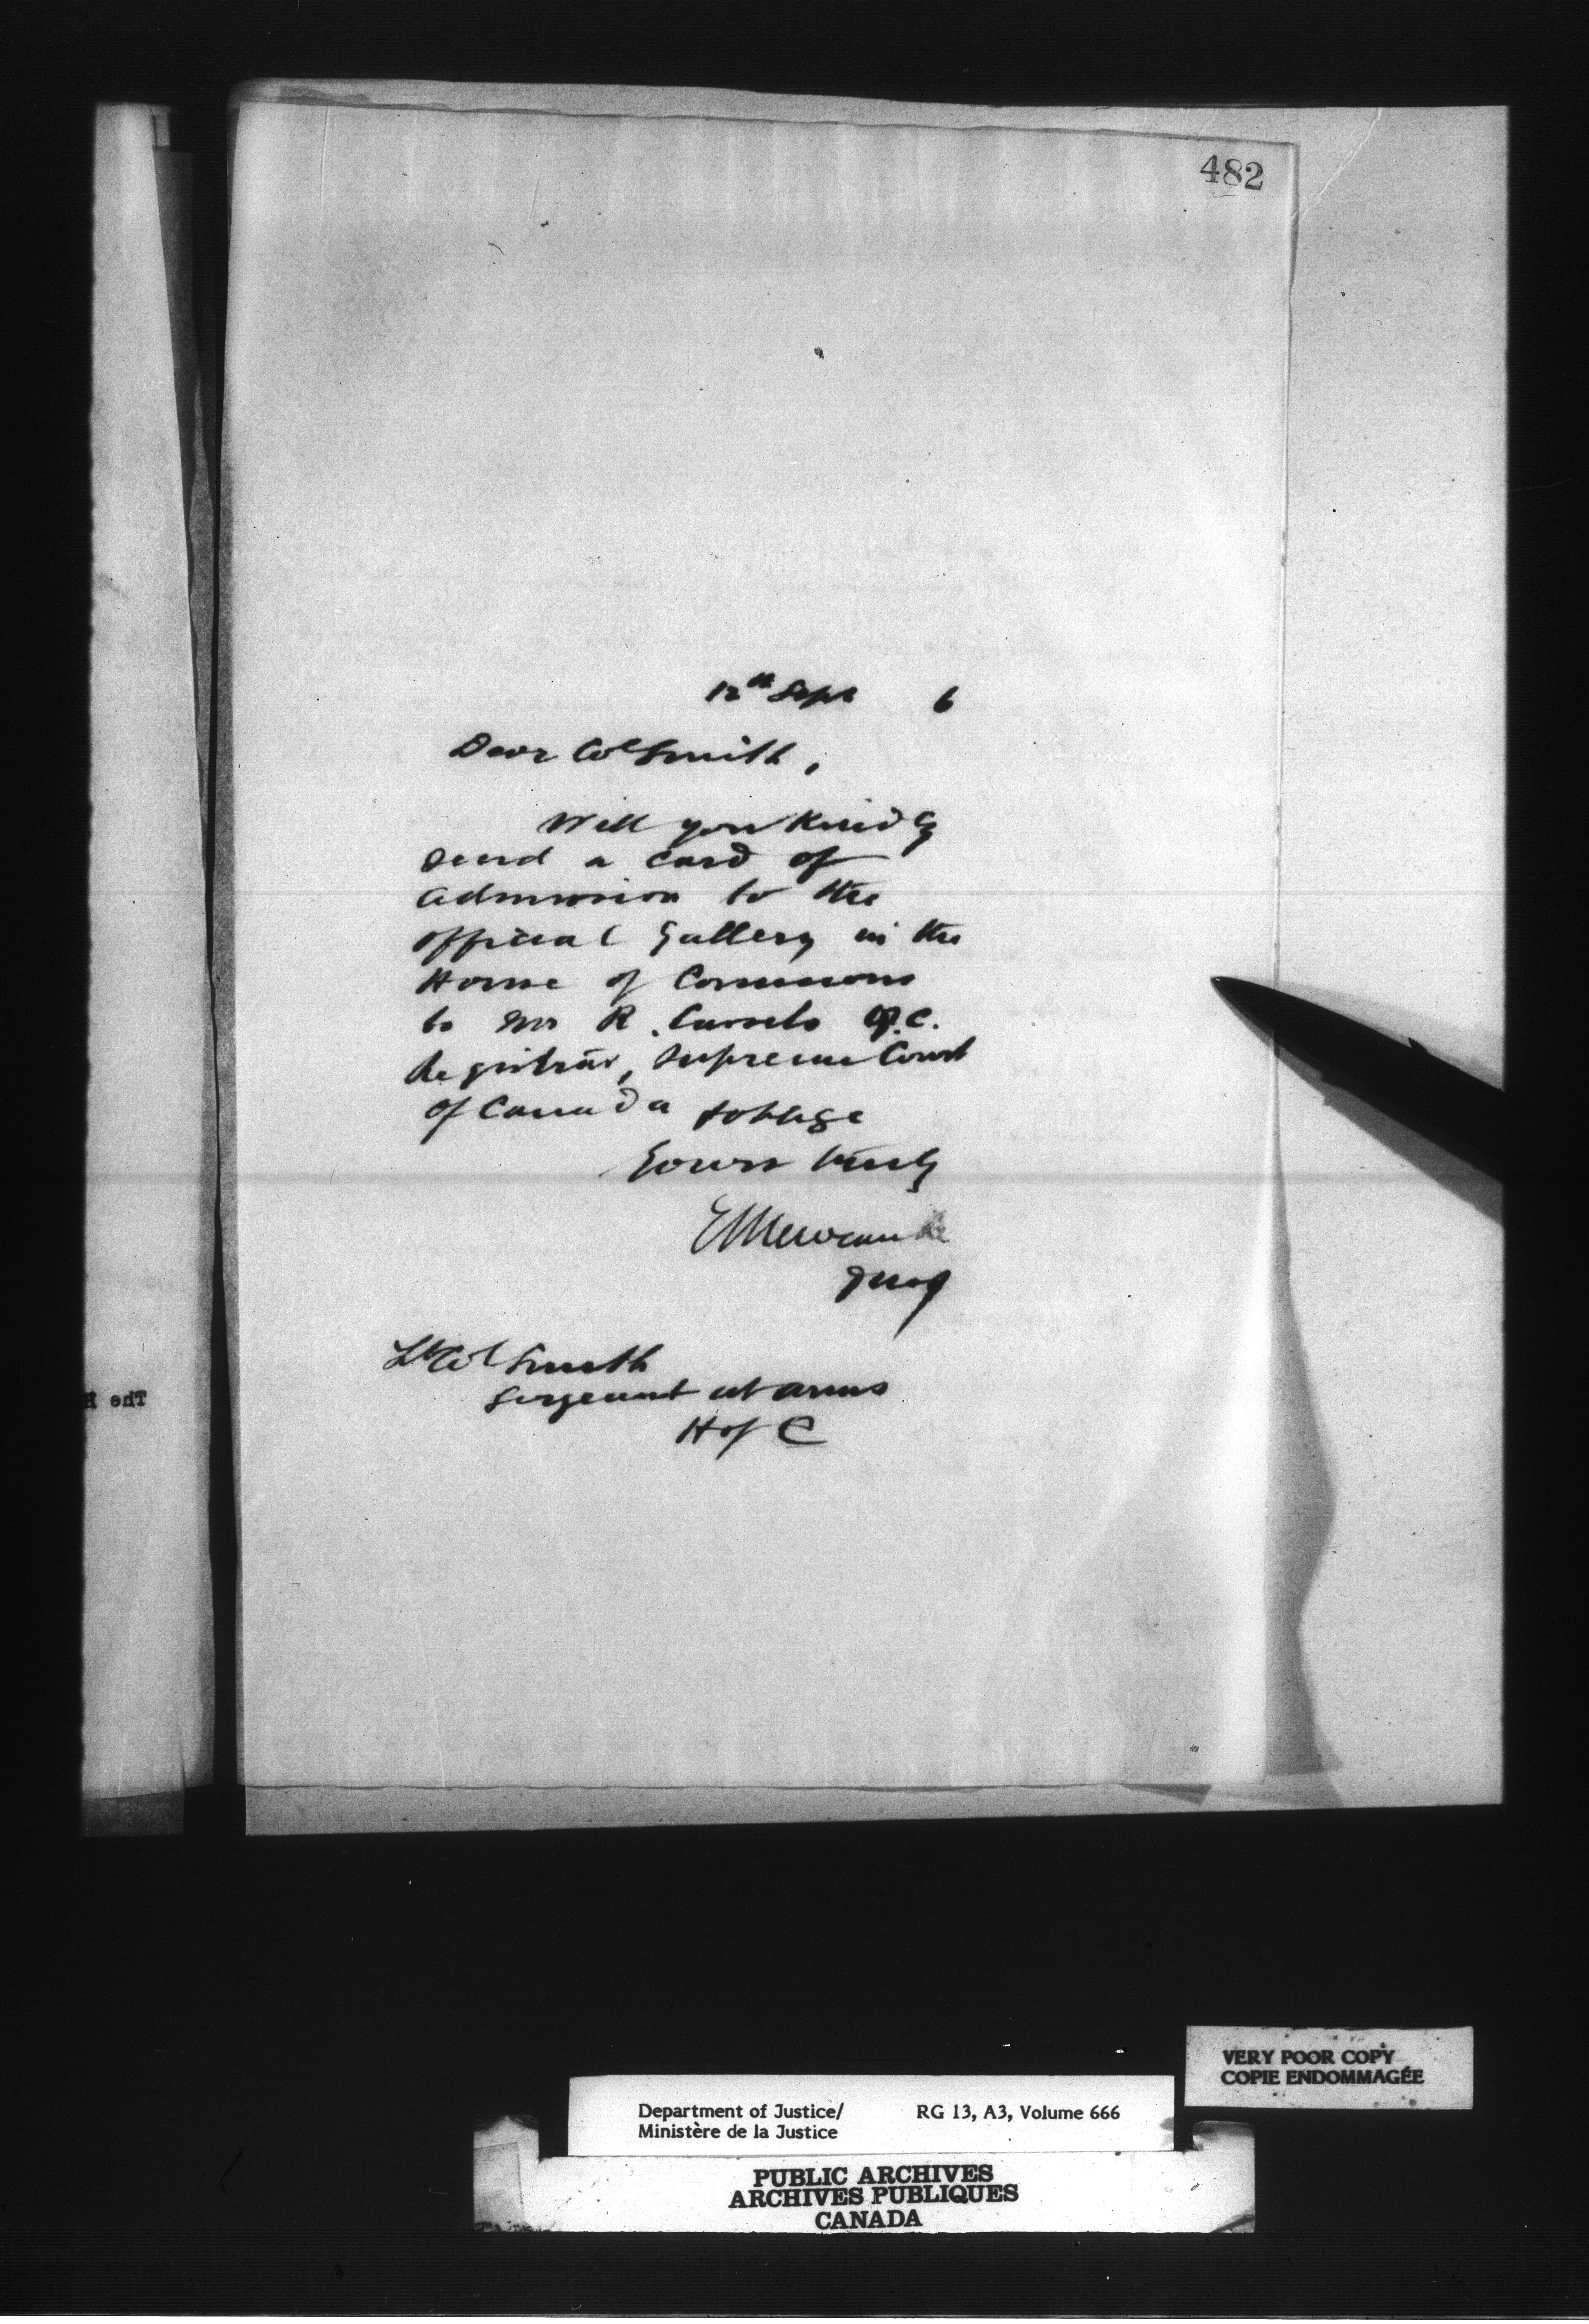 482
12th Sept 6
Dear Col Smith,
Will you kindly
send a card of
admission to the
official Gallery in the
House of Commons
to Mr R. Cassels Q.C.
Registrar, Supreme Court
of Canada & oblige
Yours truly
E L Newcombe
DMof J
Lt Col Smith
Sergeant at arms
H of C
The H
VERY POOR COPY
COPIE ENDOMMAGÉE
Department of Justice/ RG 13, A3, Volume 666
Ministère de la Justice
PUBLIC ARCHIVES
ARCHIVES PUBLIQUES
CANADA